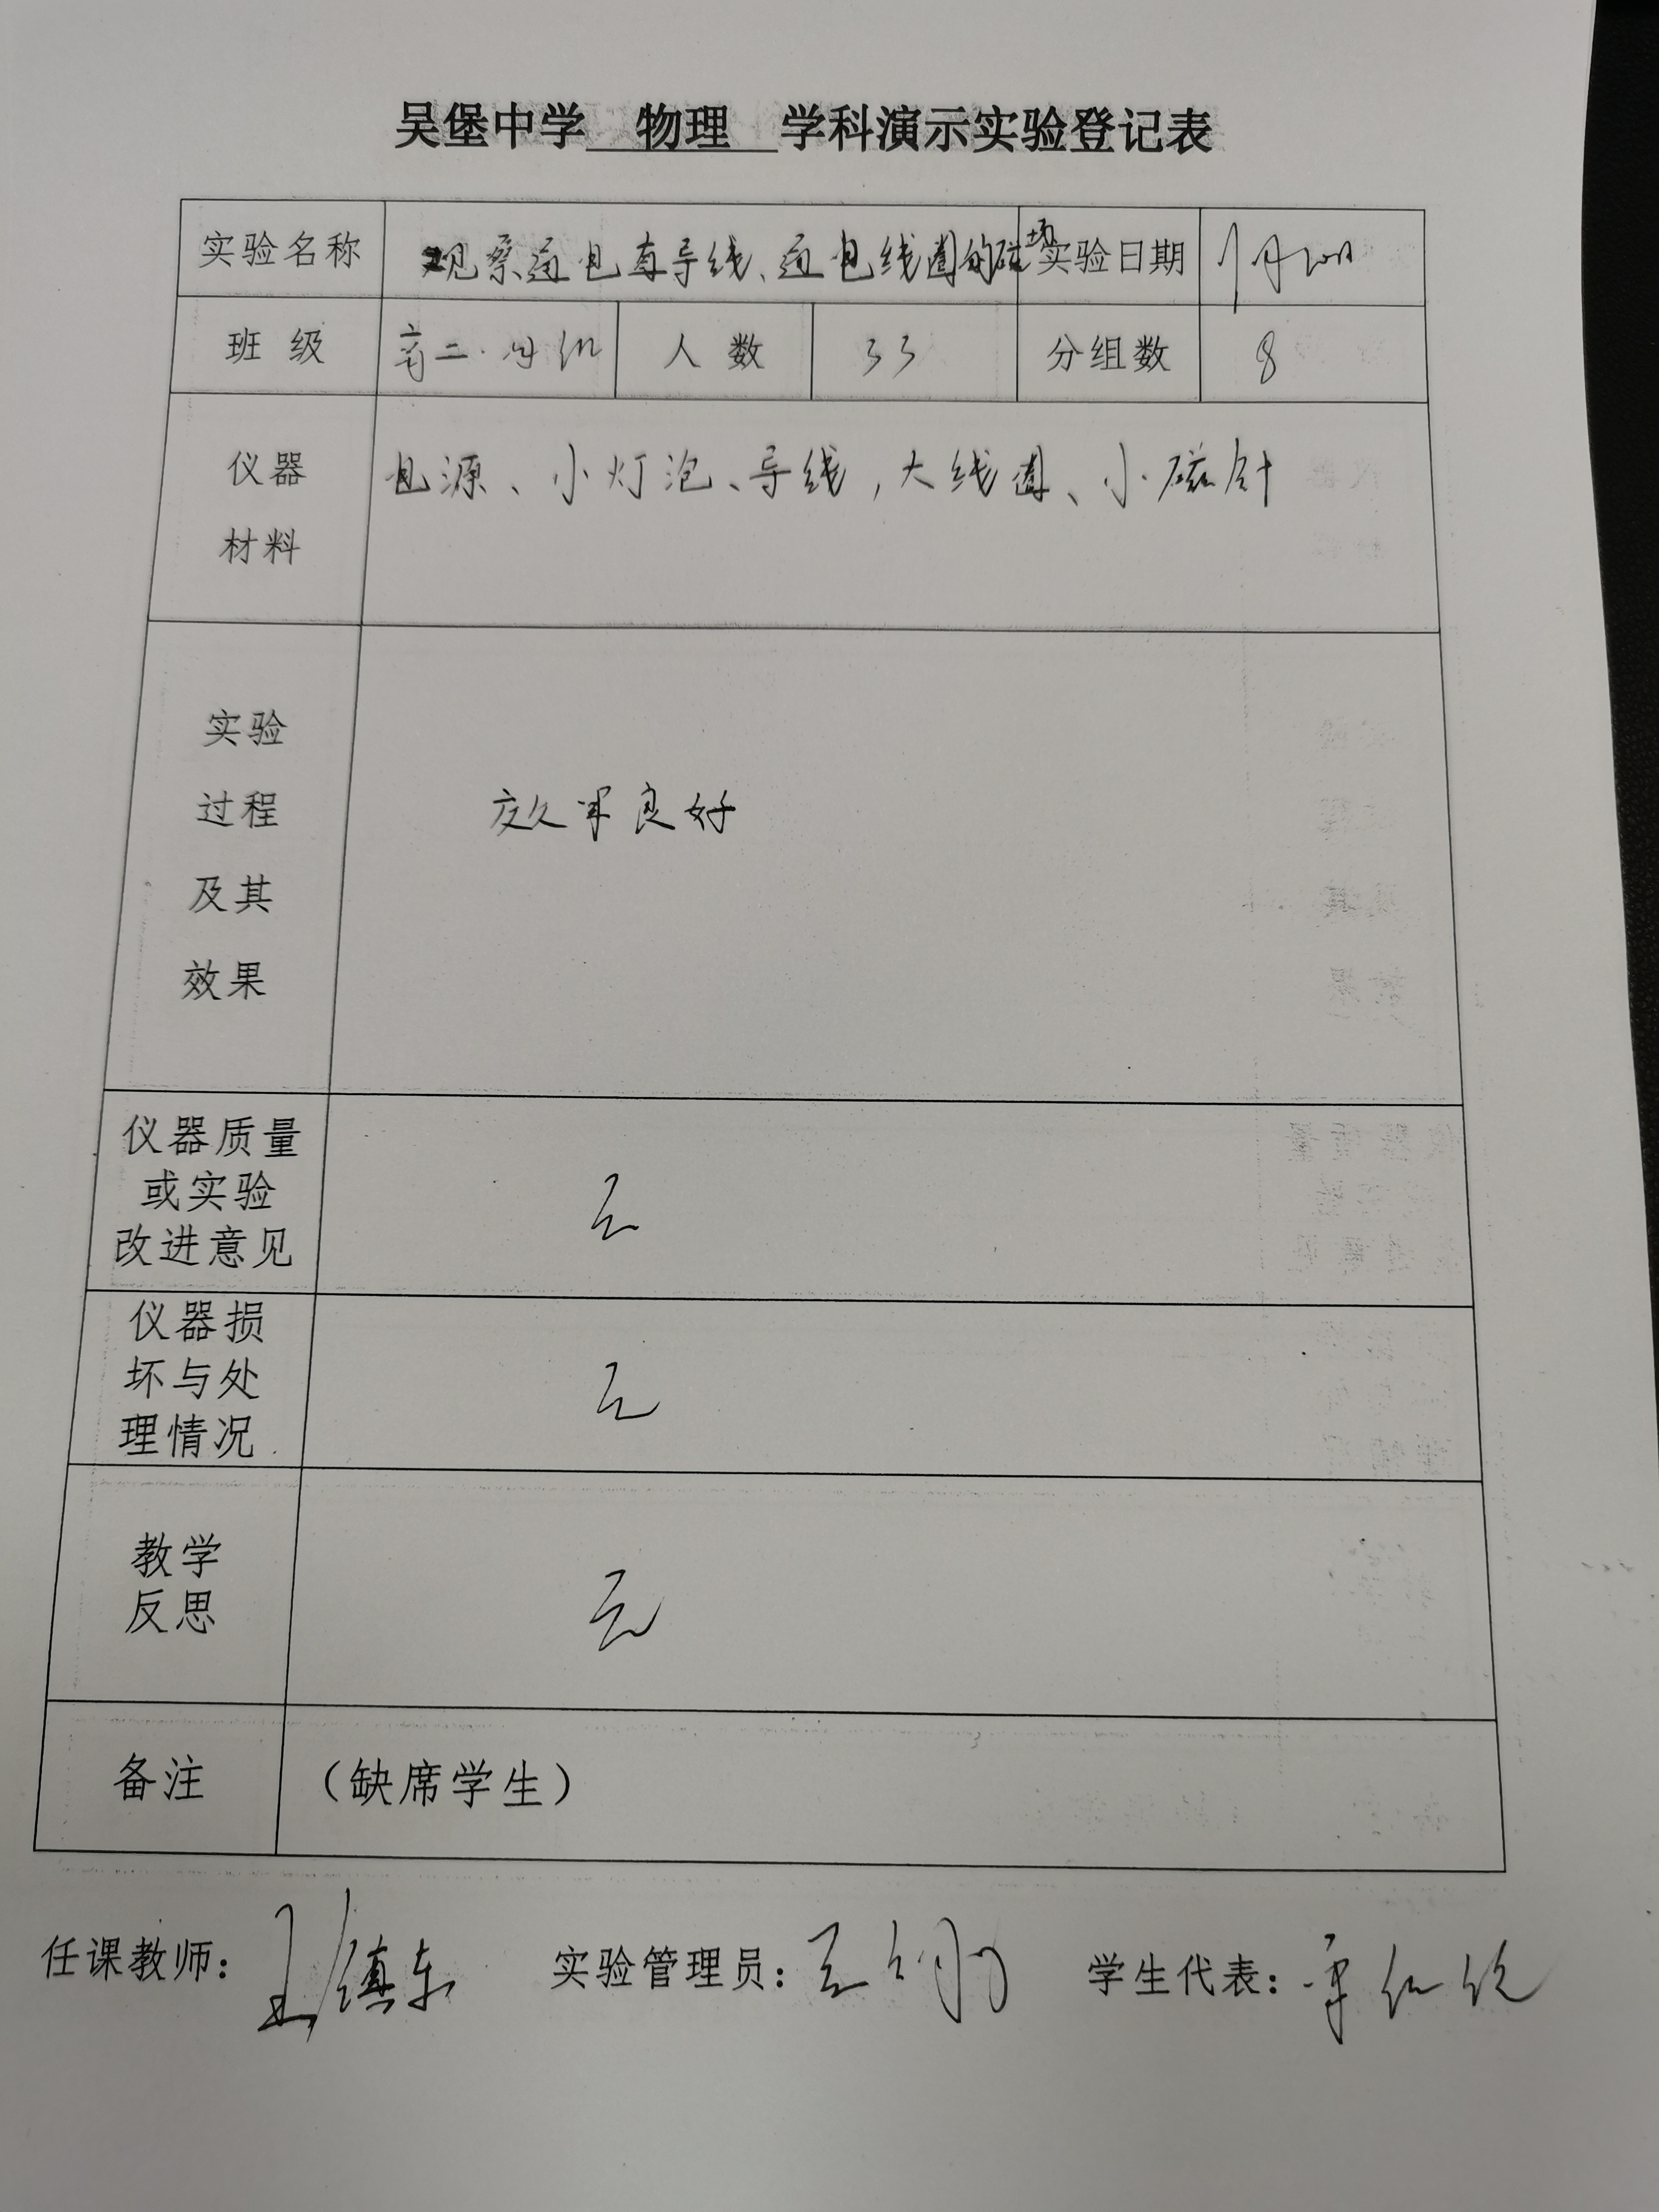 吴堡中学 物理 学科演示实验登记表
实验名称 观察通电直导线、通电线圈的磁场 实验日期
班 级 高二· 人 数 33 分组数 8
仪器 电源、小灯泡、导线,大线圈、小磁针
材料
实验
过程 效果良好
及其
效果
仪器质量
或实验 无
改进意见
仪器损
坏与处 无
理情况
教学 无
反思
备注 （缺席学生）
任课教师：王镇东 实验管理员： 学生代表：